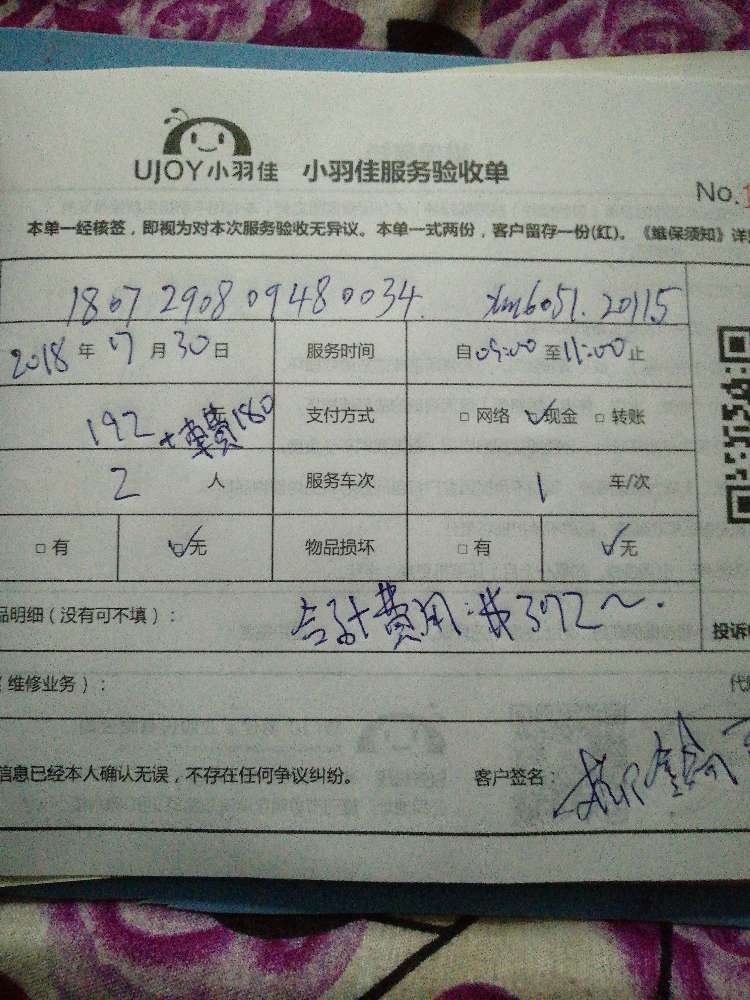 UJOY小羽佳 小羽佳服务验收单
No.1
本单一经核签，即视为对本次服务验收无异议。本单一式两份，客户留存一份(红)。《维保须知》详
1807290809480034.
2018年07月30日 服务时间 自09:00至11:00止
192 +車费180 支付方式 □网络 ☑现金 □转账
2人 服务车次 1 车/次
□有 ☑无 物品损坏 □有 ☑无
品明细（没有可不填）： 合计费用：¥372~. 投诉
（维修业务）：
信息已经本人确认无误，不存在任何争议纠纷。 客户签名：